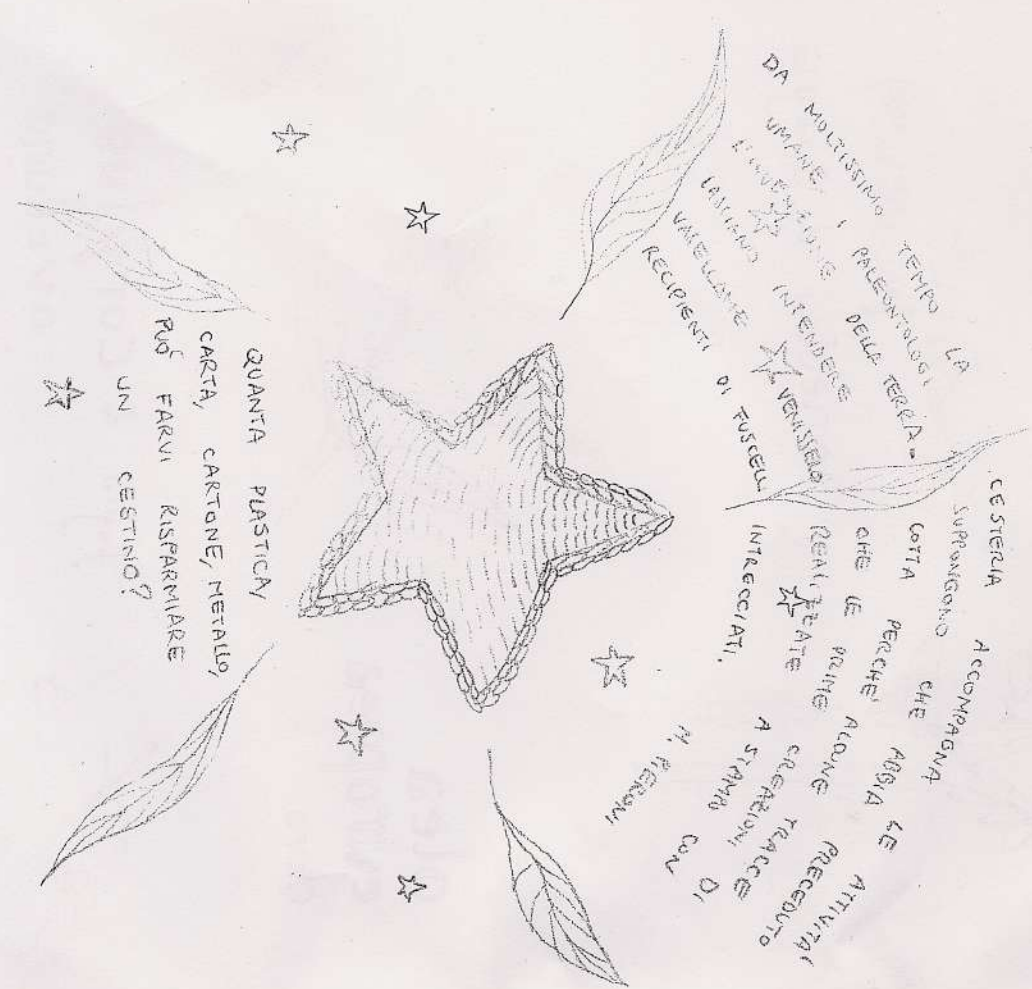 DA MOLTISSIMO TEMPO LA CESTERIA ACCOMPAGNA LE ATTIVITA'
UMANE. I PALEONTOLOGI SUPPONGONO CHE ABBIA PRECEDUTO
L'INVENZIONE DELLA TERRA-COTTA PERCHE' ALCUNE TRACCE
LASCIANO INTENDERE CHE LE PRIME CREAZIONI DI
VASELLAME VENISSERO REALIZZATE A STAMPO CON
RECIPIENTI DI FUSCELLI INTRECCIATI.
M. PIERONI
QUANTA PLASTICA,
CARTA, CARTONE, METALLO,
PUÓ FARVI RISPARMIARE
UN CESTINO?